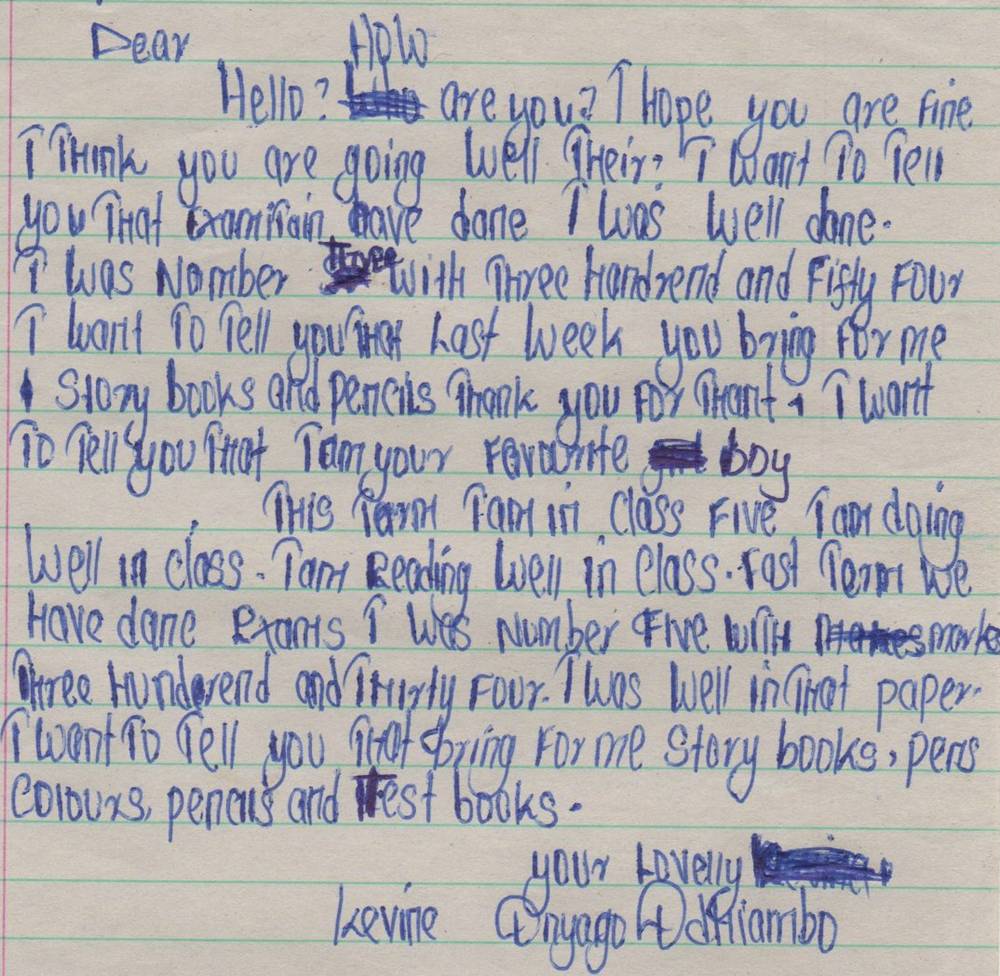 Dear How
Hello? are you? I hope you are fine
I Think you are going well Their? I want To Tell
you That examitain have dane I was well dane.
I was Number three with Three handrend and Fifty Four
I want To Tell you That Last week you bring For me
Story books and pencils Thank you For Thant. I want
To Tell you That I am your Favourite boy
This Term I am in Class Five I am doing
well in class. I am Reading well in Class. Fast Term we
Have dane Exams I was Number Five with marks
Three Hunderend and Thirty Four. I was well in That paper.
I want To Tell you That bring For me Story books, pens
Colours, pencils and Test books.
your Lovelly
Kevine Onyago Odhiambo